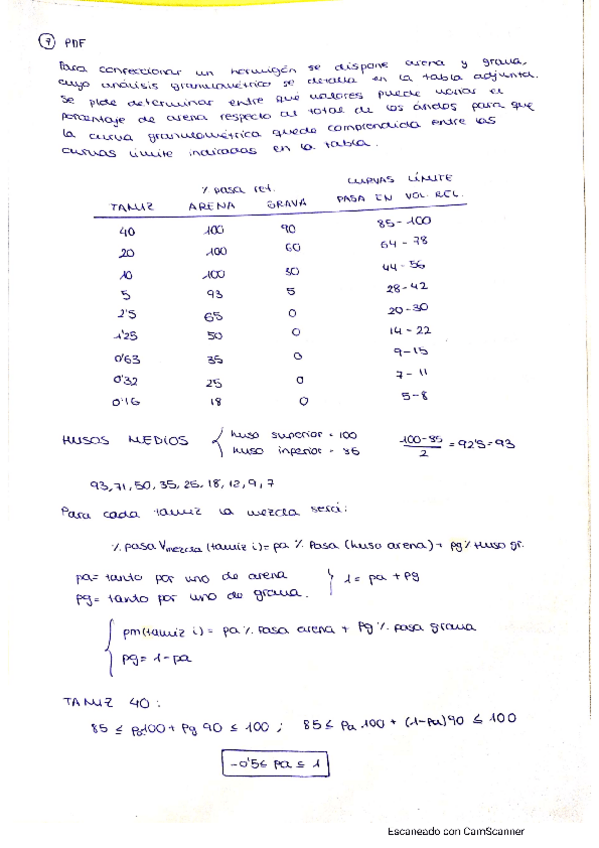 7 PDF
Para confeccionar un hormigón se dispone arena y grava,
cuyo análisis granulométrico se detalla en la tabla adjunta.
Se pide determinar entre qué valores puede variar el
porcentaje de arena respecto al total de los áridos para que
la curva granulométrica quede comprendida entre las
curvas límite indicadas en la tabla.
% pasa ret. CURVAS LÍMITE
TAMIZ ARENA GRAVA PASA EN VOL. REL.
40 100 90 85-100
20 100 60 64-78
10 100 30 44-56
5 93 5 28-42
2'5 65 0 20-30
1'25 50 0 14-22
0'63 35 0 9-15
0'32 25 0 7-11
0'16 18 0 5-8
HUSOS MEDIOS { huso superior = 100
huso inferior = 85
100-85 / 2 = 92'5 = 93
93, 71, 50, 35, 25, 18, 12, 9, 7
Para cada tamiz la mezcla será:
% pasa Vmezcla (tamiz i) = pa % Pasa (huso arena) + pg % huso gr.
pa = tanto por uno de arena
pg = tanto por uno de grava.
} 1 = pa + pg
{ pm (tamiz i) = pa % pasa arena + Pg % pasa grava
pg = 1 - pa
TAMIZ 40:
85 ≤ Pa100 + Pg 90 ≤ 100 ; 85 ≤ Pa . 100 + (1-Pa) 90 ≤ 100
-0'5 ≤ pa ≤ 1
Escaneado con CamScanner